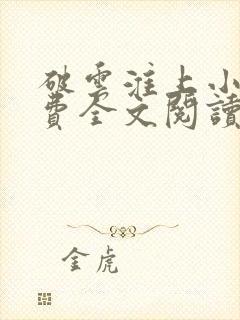 破雲淮上小
費全文閱讀
金虎